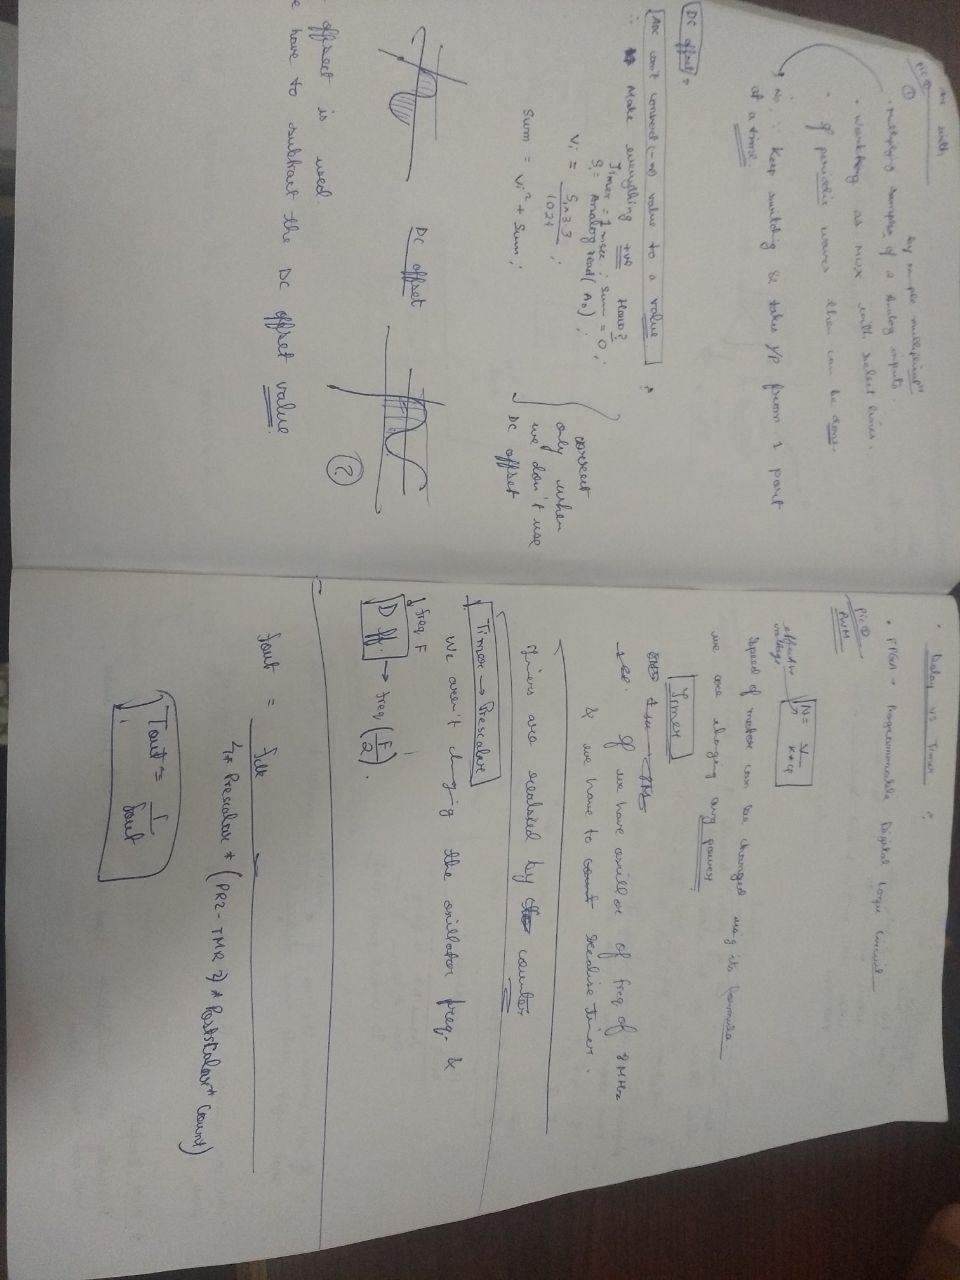 with
pic ①
①
multiplexing samples of a Analog inputs.
working as mux with select lines.
of periodic waves then can be done.
No, ∵ keep switching & takes i/p from 1 port
at a time.
DC offset?
ADC can't convert (-ve) value to a value
∴ Make everything +ve How?
Timer = 1 msec ; sum = 0 ;
= Analog read (A0) ;
Vi =
1024
Sum = Vi² + Sum ;
correct
only when
we don't use
DC offset
DC offset
?
offsect is used.
have to subtract the DC offset value.
Delay vs Timer ?
FPGA → Programmable Digital Logic Circuit
pic ①
PWM
effective
voltage
N = V / K*φ
Speed of motor can be changed using its formula.
we are changing avg power
Timer
If we have oscillator of freq of 8 MHz
& we have to count realise timer.
Timers are realised by counter
Timer → Prescalar
We aren't changing the oscillator freq. &
freq F
D ff. → freq (F/2).
fout = fclk
4 * Prescalar * (PR2 - TMR 2) * Postscalar * Count)
Tout = 1 / fout